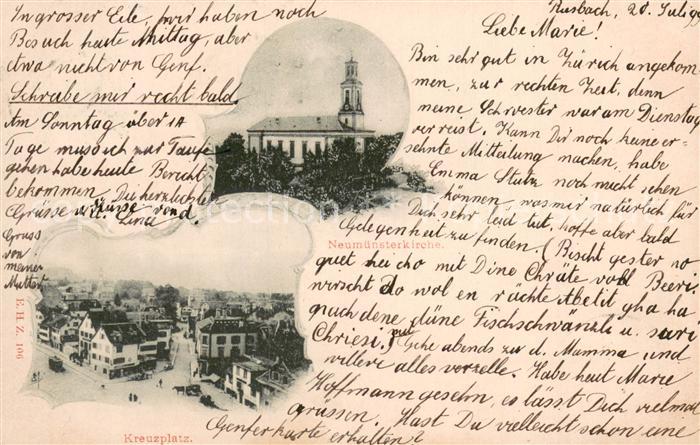 Rusbach, 20. Juli 99
Liebe Marie!
Bin sehr gut in Zürich angekom
men, zur rechten Zeit, denn
meine Schwester war am Dienstag
verreist. Kann Dir noch keine er-
sehnte Mitteilung machen, habe
Emma Stutz noch nicht sehen
können, was mir natürlich für
Dich sehr leid tut, hoffe aber bald
Gelegenheit zu finden. (Bischt gester no
guet hei cho mit Dine Chräte voll Beeri,
wirscht do wol en rächte Abetit gha ha
nach dene düne Fischschwänzli u. sure
Chriesi.) Gehe abends zu d. Mamma und
will ere alles verzelle. Habe heut Marie
Hoffmann gesehn, es lässt Dich vielmal
grüssen. Hast Du vielleicht schon eine
Genferkarte erhalten?
In grosser Eile, wir haben noch
Besuch heute Mittag, aber
etwa nicht von Genf.
Schreibe mir recht bald.
Am Sonntag über 14
Tage muss ich zur Taufe
gehen habe heute Bericht
bekommen. Die herzlichste
Grüsse u. Küsse von d.
Lina
Gruss
von
meiner
Mutter
Neumünsterkirche.
E. H. Z. 106
Kreuzplatz.